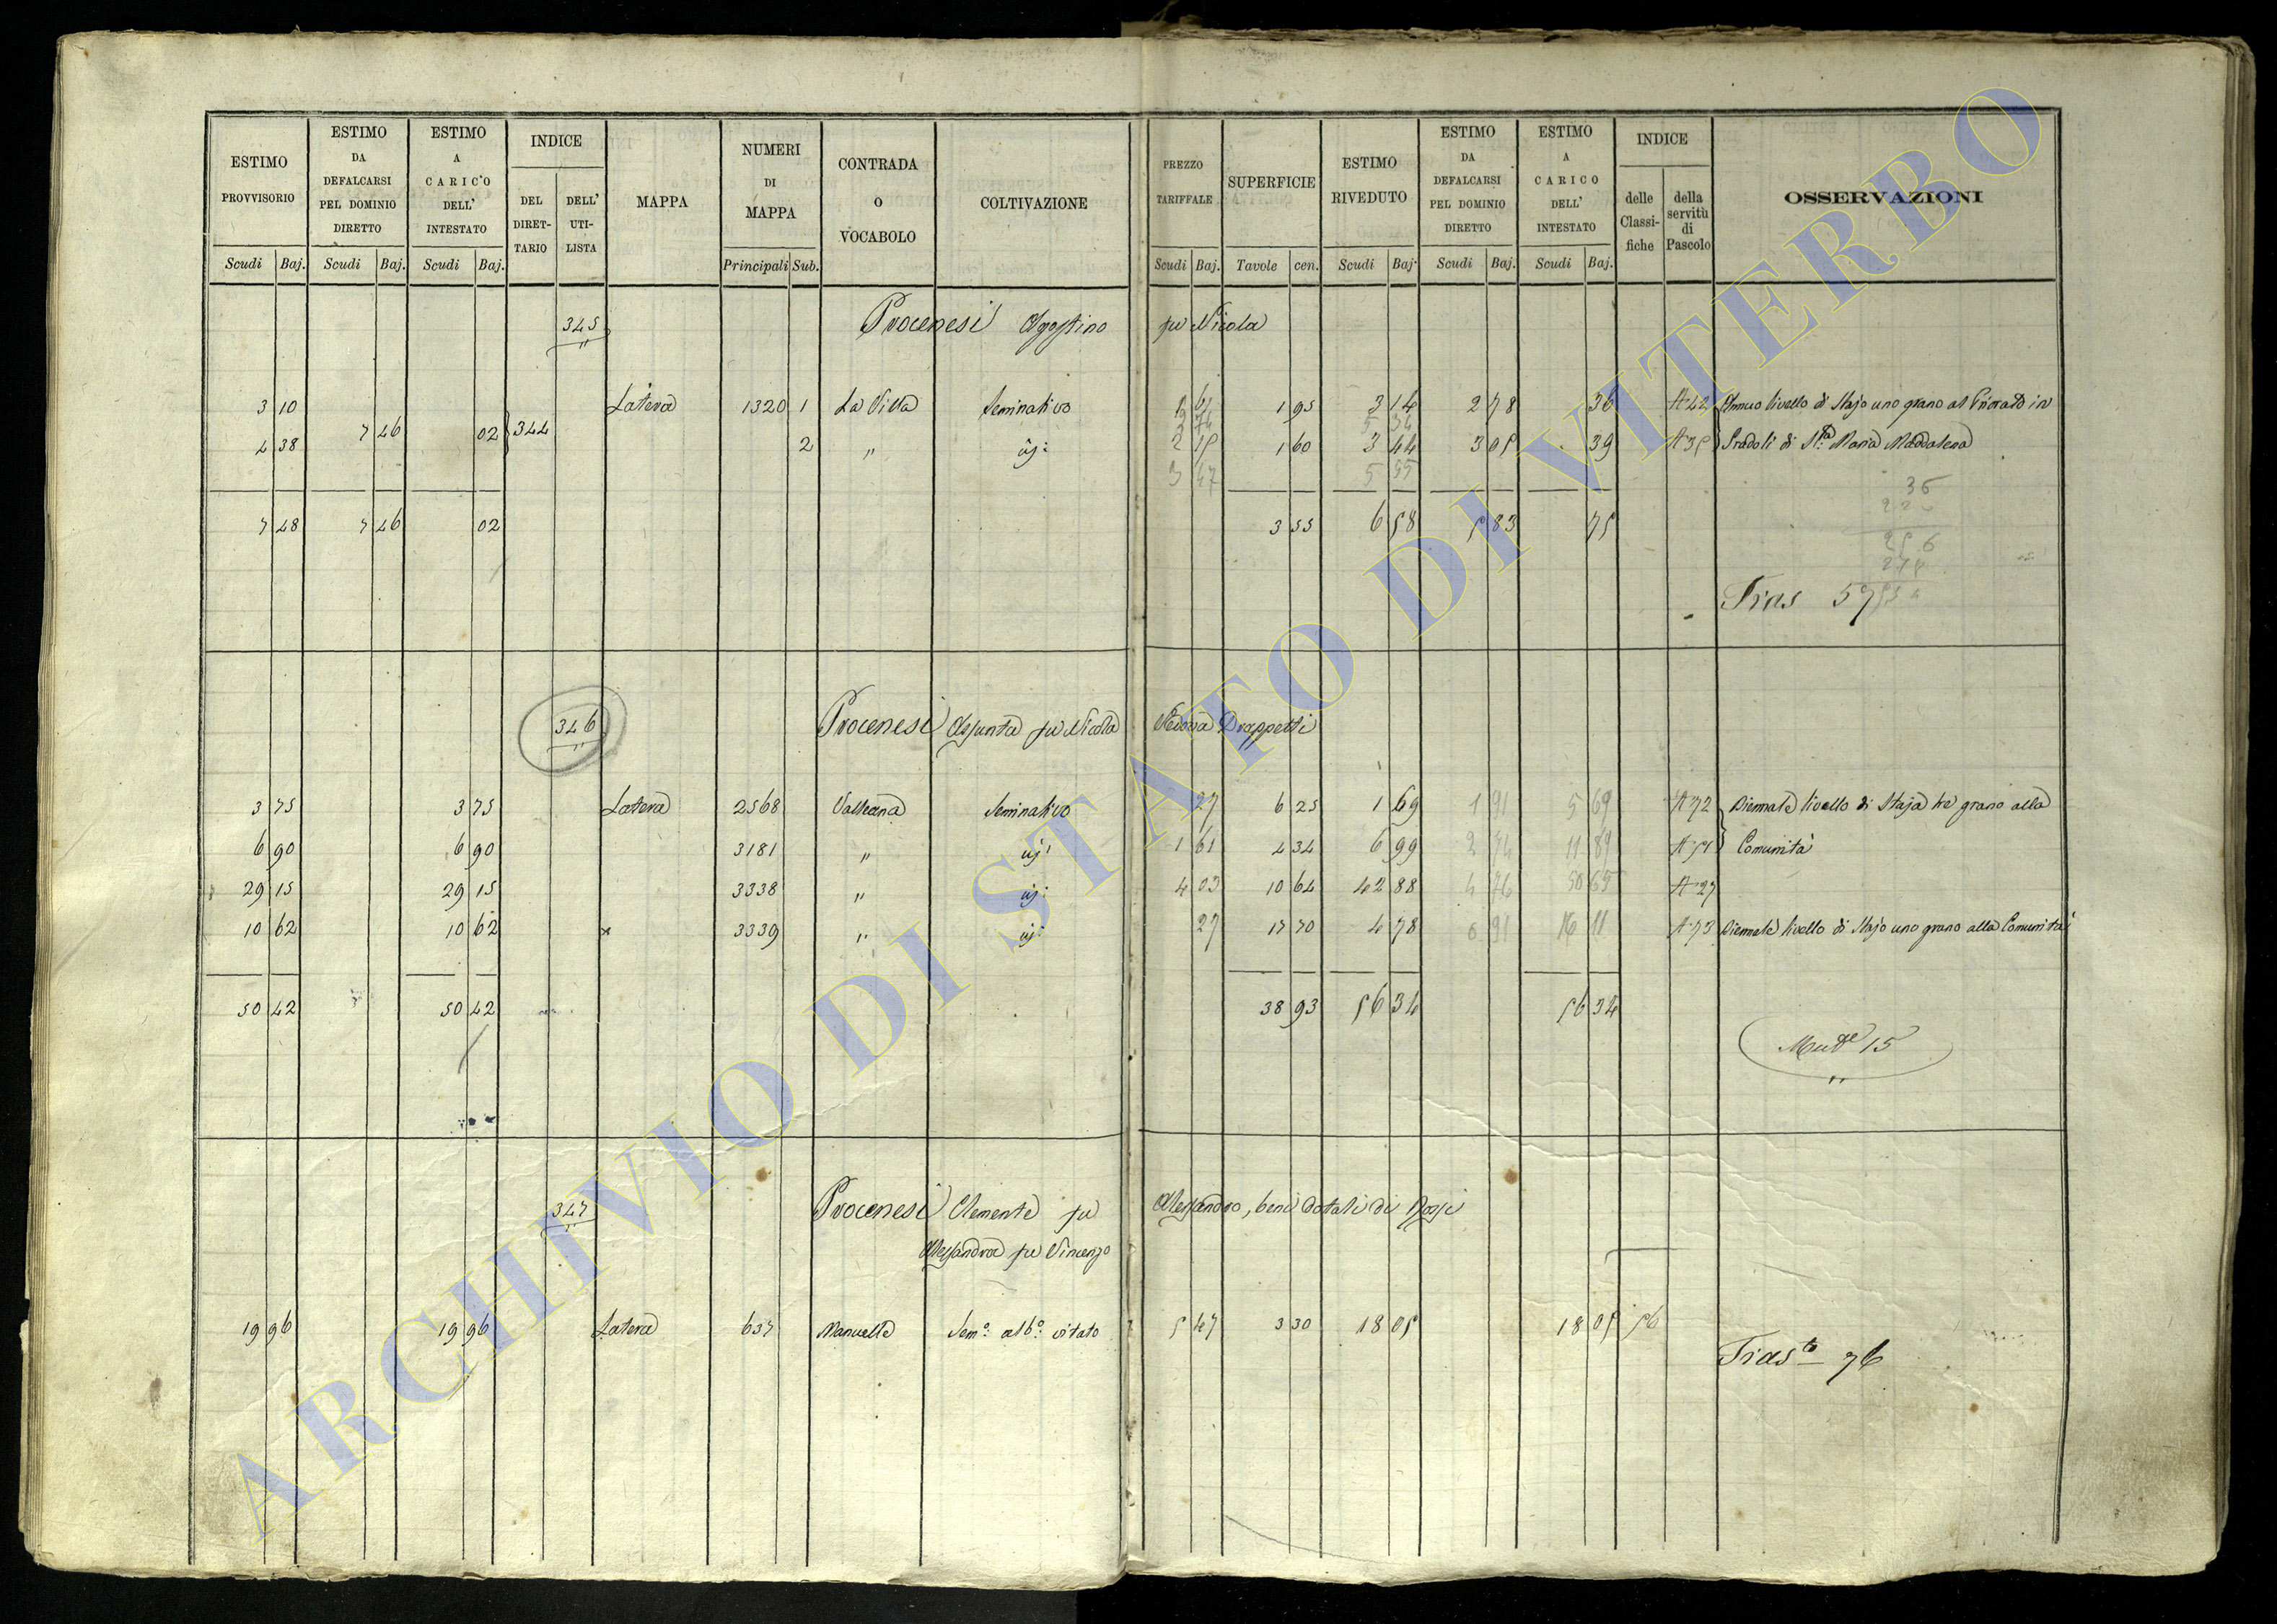 ESTIMO PROVVISORIO
ESTIMO DA DEFALCARSI PEL DOMINIO DIRETTO
ESTIMO A CARICO DELL' INTESTATO
INDICE
DEL DIRETTARIO
DELL' UTILISTA
MAPPA
NUMERI DI MAPPA
CONTRADA O VOCABOLO
COLTIVAZIONE
PREZZO TARIFFALE
SUPERFICIE
ESTIMO RIVEDUTO
ESTIMO DA DEFALCARSI PEL DOMINIO DIRETTO
ESTIMO A CARICO DELL' INTESTATO
INDICE
delle Classifiche
della servitù di Pascolo
OSSERVAZIONI
Scudi Baj. Scudi Baj. Scudi Baj. Principali Sub. Scudi Baj. Tavole cen. Scudi Baj. Scudi Baj. Scudi Baj.
345 Procenesi Agostino fu Nicola
3 10 Latera 1320 1 La Villa Seminativo 1 61 1 95 3 14 2 78 36 A 42 Annuo livello di Stajo uno grano al Priorato in
7 46 02 344
4 38 2 " id: 2 15 1 60 3 44 3 05 39 A 35 Gradoli di S.ta Maria Maddalena
3 47 5 55
36
7 48 7 46 02 3 55 6 58 5 83 75
Tras 57
346 Procenesi Assunta fu Nicola Vedova Drappetti
3 75 3 75 Latera 2568 Valleana Seminativo 27 6 25 1 69 1 91 5 69 A 72 Biennale livello di Staja tre grano alla
6 90 6 90 3181 " id: 1 61 4 34 6 99 2 74 11 89 A 51 Comunità
29 15 29 15 3338 " id: 4 03 10 64 42 88 4 76 50 65 A 27
10 62 10 62 x 3339 " id: 27 17 70 4 78 6 91 16 11 A 73 Biennale livello di Stajo uno grano alla Comunità
50 42 50 42 38 93 56 34 56 34
15
347 Procenesi Clemente fu Alessandro, beni dotali di Rossi
Alessandra fu Vincenzo
19 96 19 96 Latera 637 Manuelle Sem.o alb.o vitato 5 47 3 30 18 05 18 05 56
Tras.to 76
ARCHIVIO DI STATO DI VITERBO